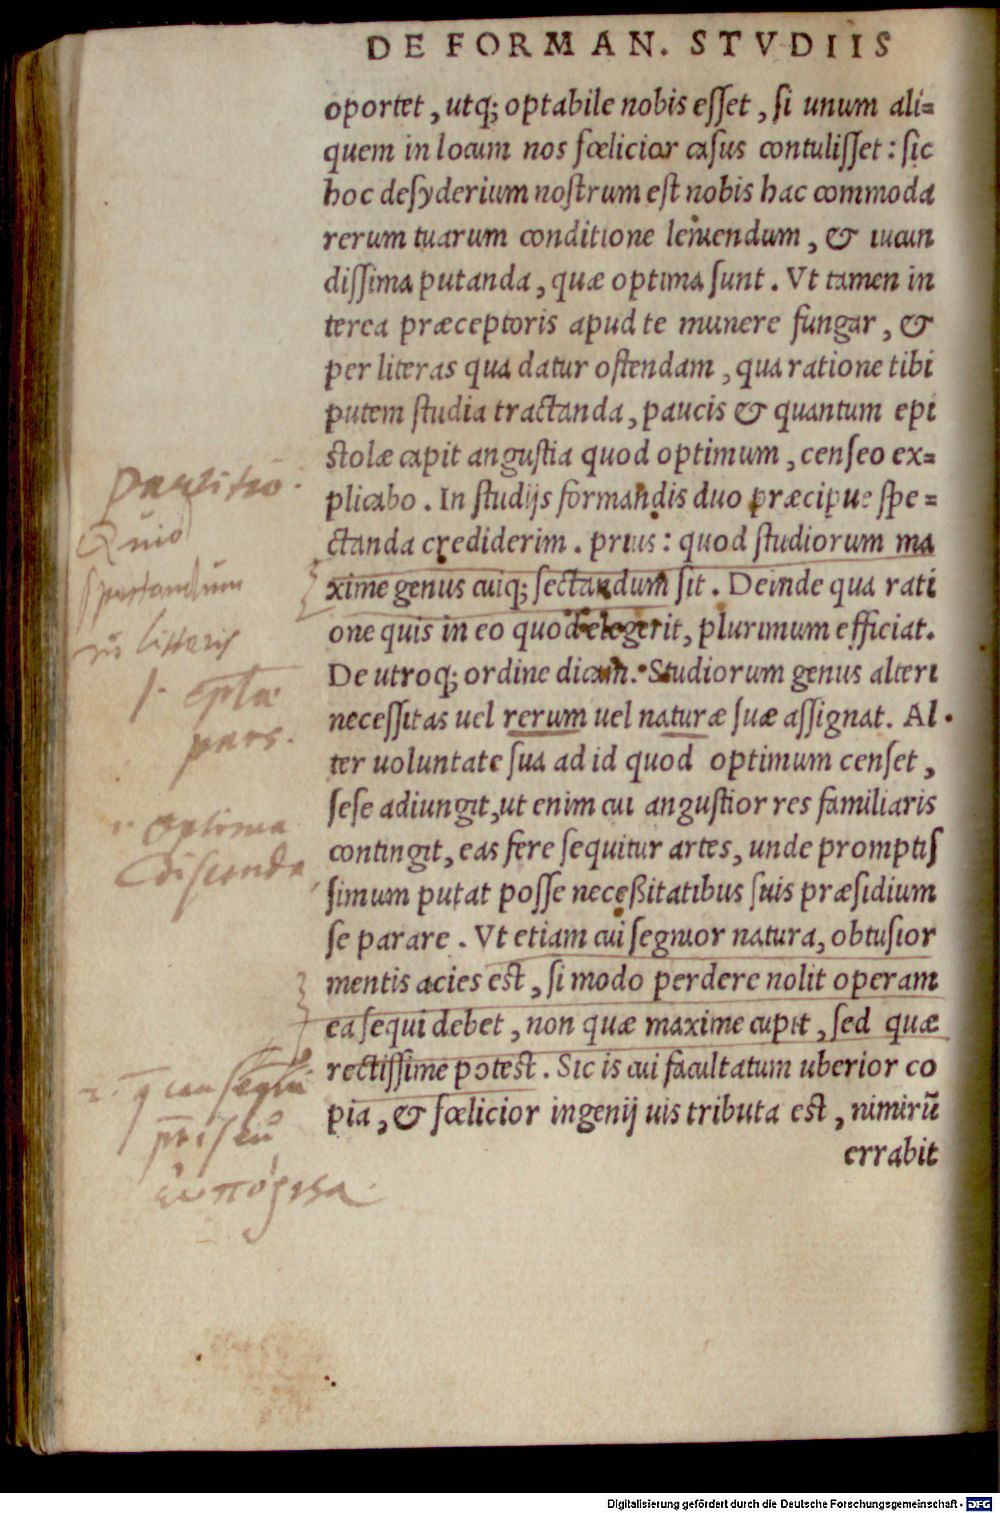 DE FORMAN. STVDIIS
oportet, utq; optabile nobis esset, si unum ali=
quem in locum nos fœlicior casus contulisset: sic
hoc desyderium nostrum est nobis hac commoda
rerum tuarum conditione leniendum, & iucun
dissima putanda, quæ optima sunt. Vt tamen in
terea præceptoris apud te munere fungar, &
per literas qua datur ostendam, qua ratione tibi
putem studia tractanda, paucis & quantum epi
stolæ capit angustia quod optimum, censeo ex=
plicabo. In studijs formandis duo præcipue spe=
ctanda crediderim. prius: quod studiorum ma
xime genus cuiq; sectandum sit. Deinde qua rati
one quis in eo quod elegerit, plurimum efficiat.
De utroq; ordine dicam. Studiorum genus alteri
necessitas uel rerum uel naturæ suæ assignat. Al
ter uoluntate sua ad id quod optimum censet,
sese adiungit, ut enim cui angustior res familiaris
contingit, eas fere sequitur artes, unde promptis
simum putat posse neceßitatibus suis præsidium
se parare. Vt etiam cui segnior natura, obtusior
mentis acies est, si modo perdere nolit operam
ea sequi debet, non quæ maxime cupit, sed quæ
rectissime potest. Sic is cui facultatum uberior co
pia, & fœlicior ingenij uis tributa est, nimirũ
errabit
Partitio.
Quid
spectandum
litteris
pars.
optima
discenda
Digitalisierung gefördert durch die Deutsche Forschungsgemeinschaft - DFG